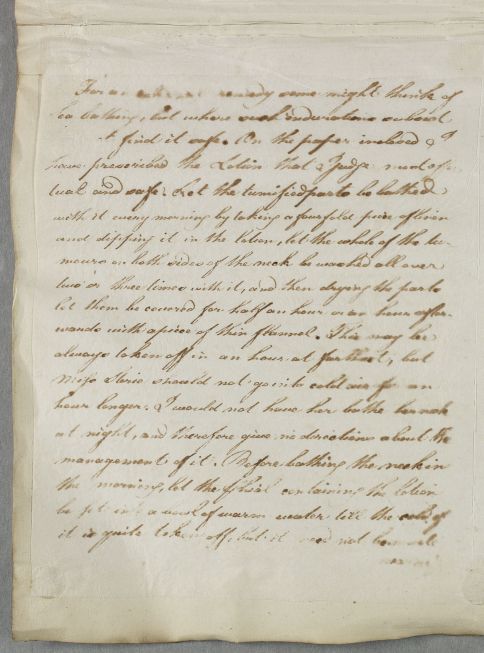 For an external remedy some might think of
Sea bathing, but where such indurations
find it safe. On the paper inclosed I
have prescribed the Lotion that I judge most
tual and safe. Let the tumified parts be bathed
with it every morning by taking a fourfold piece of linen
and dipping it in the lotion, let the whole of the tu-
mours on both sides of the neck be washed all over
two or three times with it, and then drying the parts
let them be covered for half an hour or an hour after-
wards with a piece of thin flannel. This may be
always taken off in an hour at farthest, but
Miss should not go into cold air for an
hour longer. I would not have her bathe her neck
at night, and therefore give no directions about the
management of it. Before bathing the neck in
the morning, let the phial containing the lotion
be put into a bowl of warm water till the cold of
it is quite taken off, but it need not be made